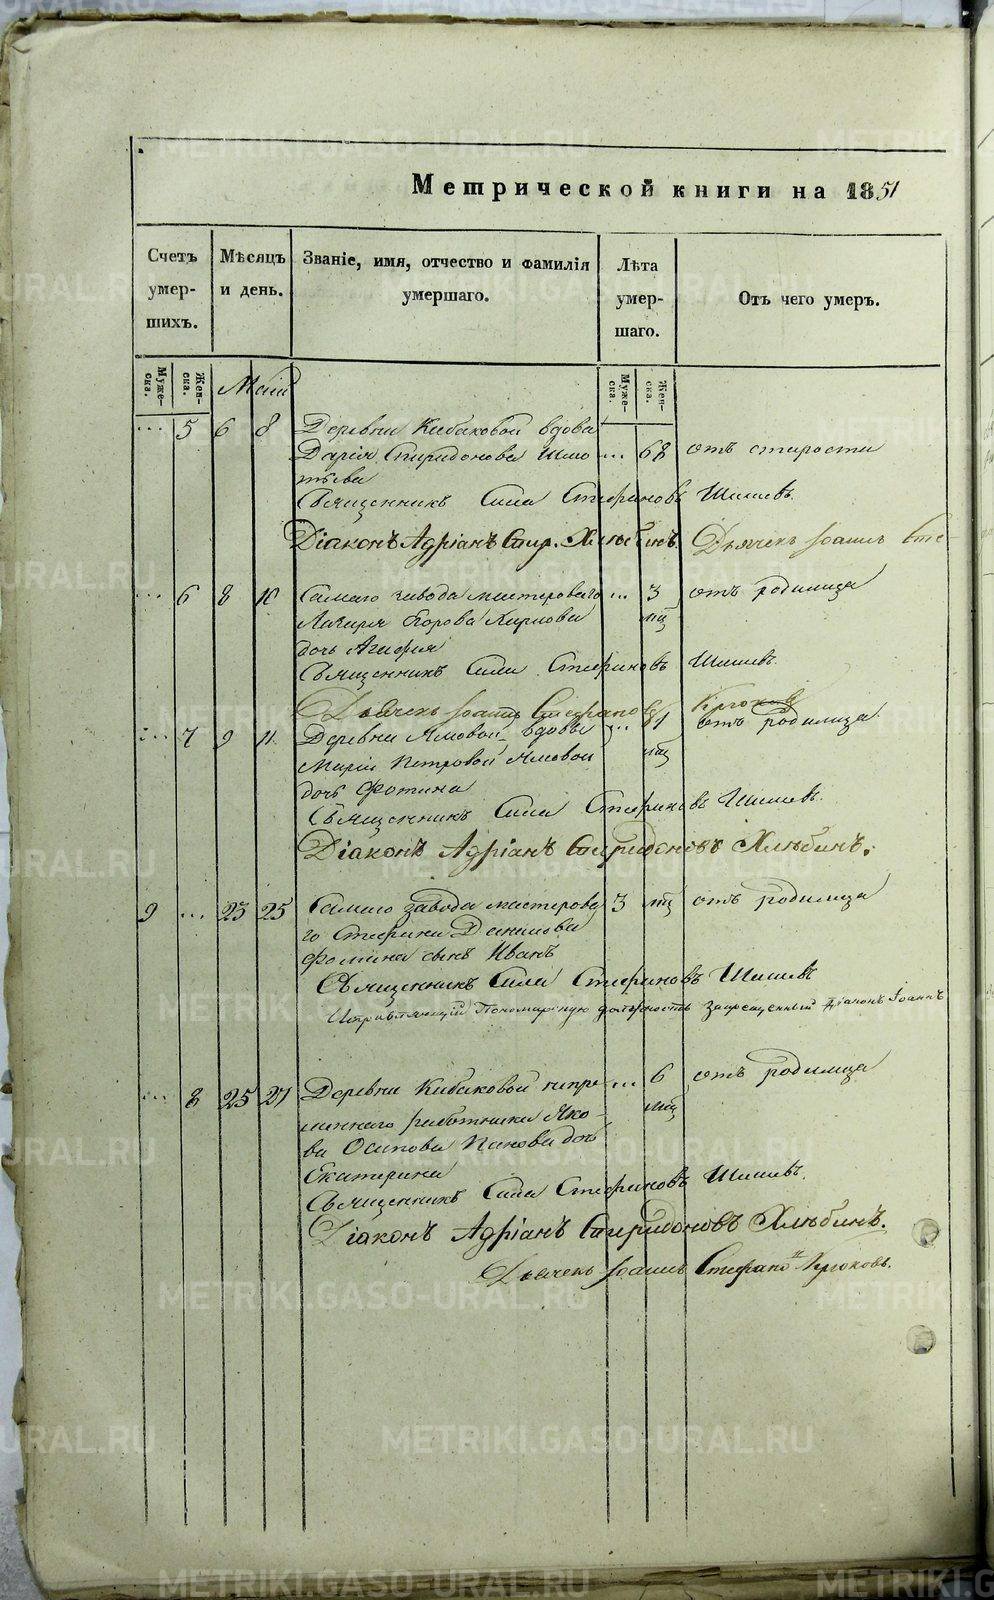 Метрической книги на 1851
Счетъ умер- шихъ.
Мѣсяцъ и день.
Званіе, имя, отчество и фамилія умершаго.
Лѣта умер- шаго.
Отъ чего умеръ.
Муже- ска.
Жен- ска.
Маій
Муже- ска.
Жен- ска.
... 5 6 8 Деревни Кибаковой вдова
Дарія Спиридонова ... 68 отъ старости
Священникъ Сила Стефановъ Шишевъ.
Діаконъ Адріанъ Спир. Хлѣбинъ. Дьячекъ Іоаннъ Сте-
... 6 8 10 Самаго завода мастероваго ... 3 отъ родимца
Лазаря Егорова мц
дочь Агафія
Священникъ Сила Стефановъ Шишевъ.
Дьячекъ Іоаннъ Стефановъ Крюковъ
... 7 9 11 Деревни Ямовой вдовы ... 1 отъ родимца.
Маріи Петровой Ямовой мц
дочь Фотина
Священникъ Сила Стефановъ Шишевъ.
Діаконъ Адріанъ Спиридоновъ Хлѣбинъ.
9 ... 23 25 Самаго завода мастерова- 3 мц отъ родимца
го Стефана Данилова
Фомина сынъ Иванъ
Священникъ Сила Стефановъ Шишевъ
Исправляющій Пономарскую должность запрещенный Діаконъ Іоаннъ
... 8 25 27 Деревни Кибаковой ... 6 отъ родимца
работника Яко- мц
ва Осипова Панова дочь
Екатерина
Священникъ Сила Стефановъ Шишевъ.
Діаконъ Адріанъ Спиридоновъ Хлѣбинъ.
Дьячекъ Іоаннъ Стефановъ Крюковъ.
METRIKI.GASO-URAL.RU